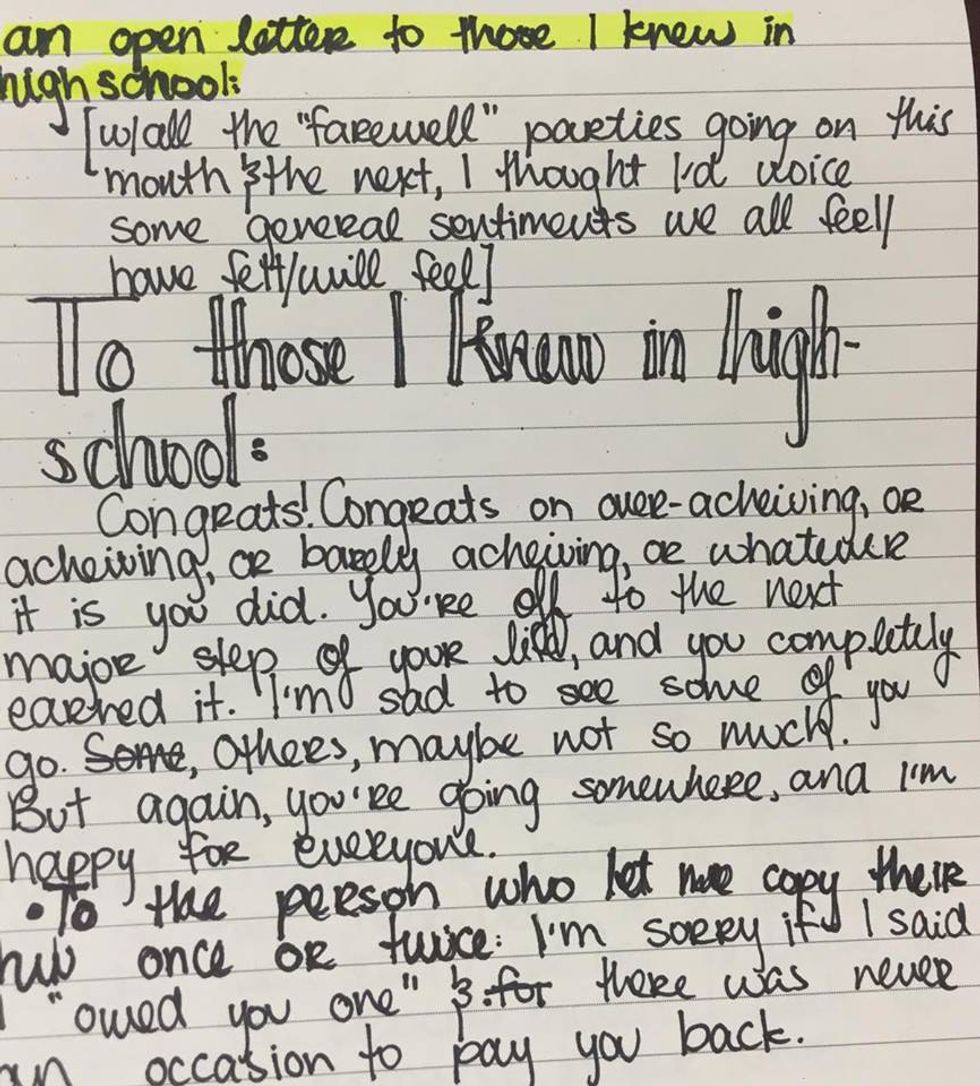 an open letter to those I knew in
highschool:
[w/all the "farewell" parties going on this
month & the next, I thought I'd voice
some general sentiments we all feel/
have felt/will feel]
To those I knew in high-
school:
Congrats! Congrats on over-acheiving, or
acheiving, or barely acheiving, or whatever
it is you did. You're off to the next
major step of your life, and you completely
earned it. I'm sad to see some of you
go. Some, Others, maybe not so much.
But again, you're going somewhere, and I'm
happy for everyone.
• To the person who let me copy their
hw once or twice: I'm sorry if I said
I "owed you one" & for there was never
an occasion to pay you back.